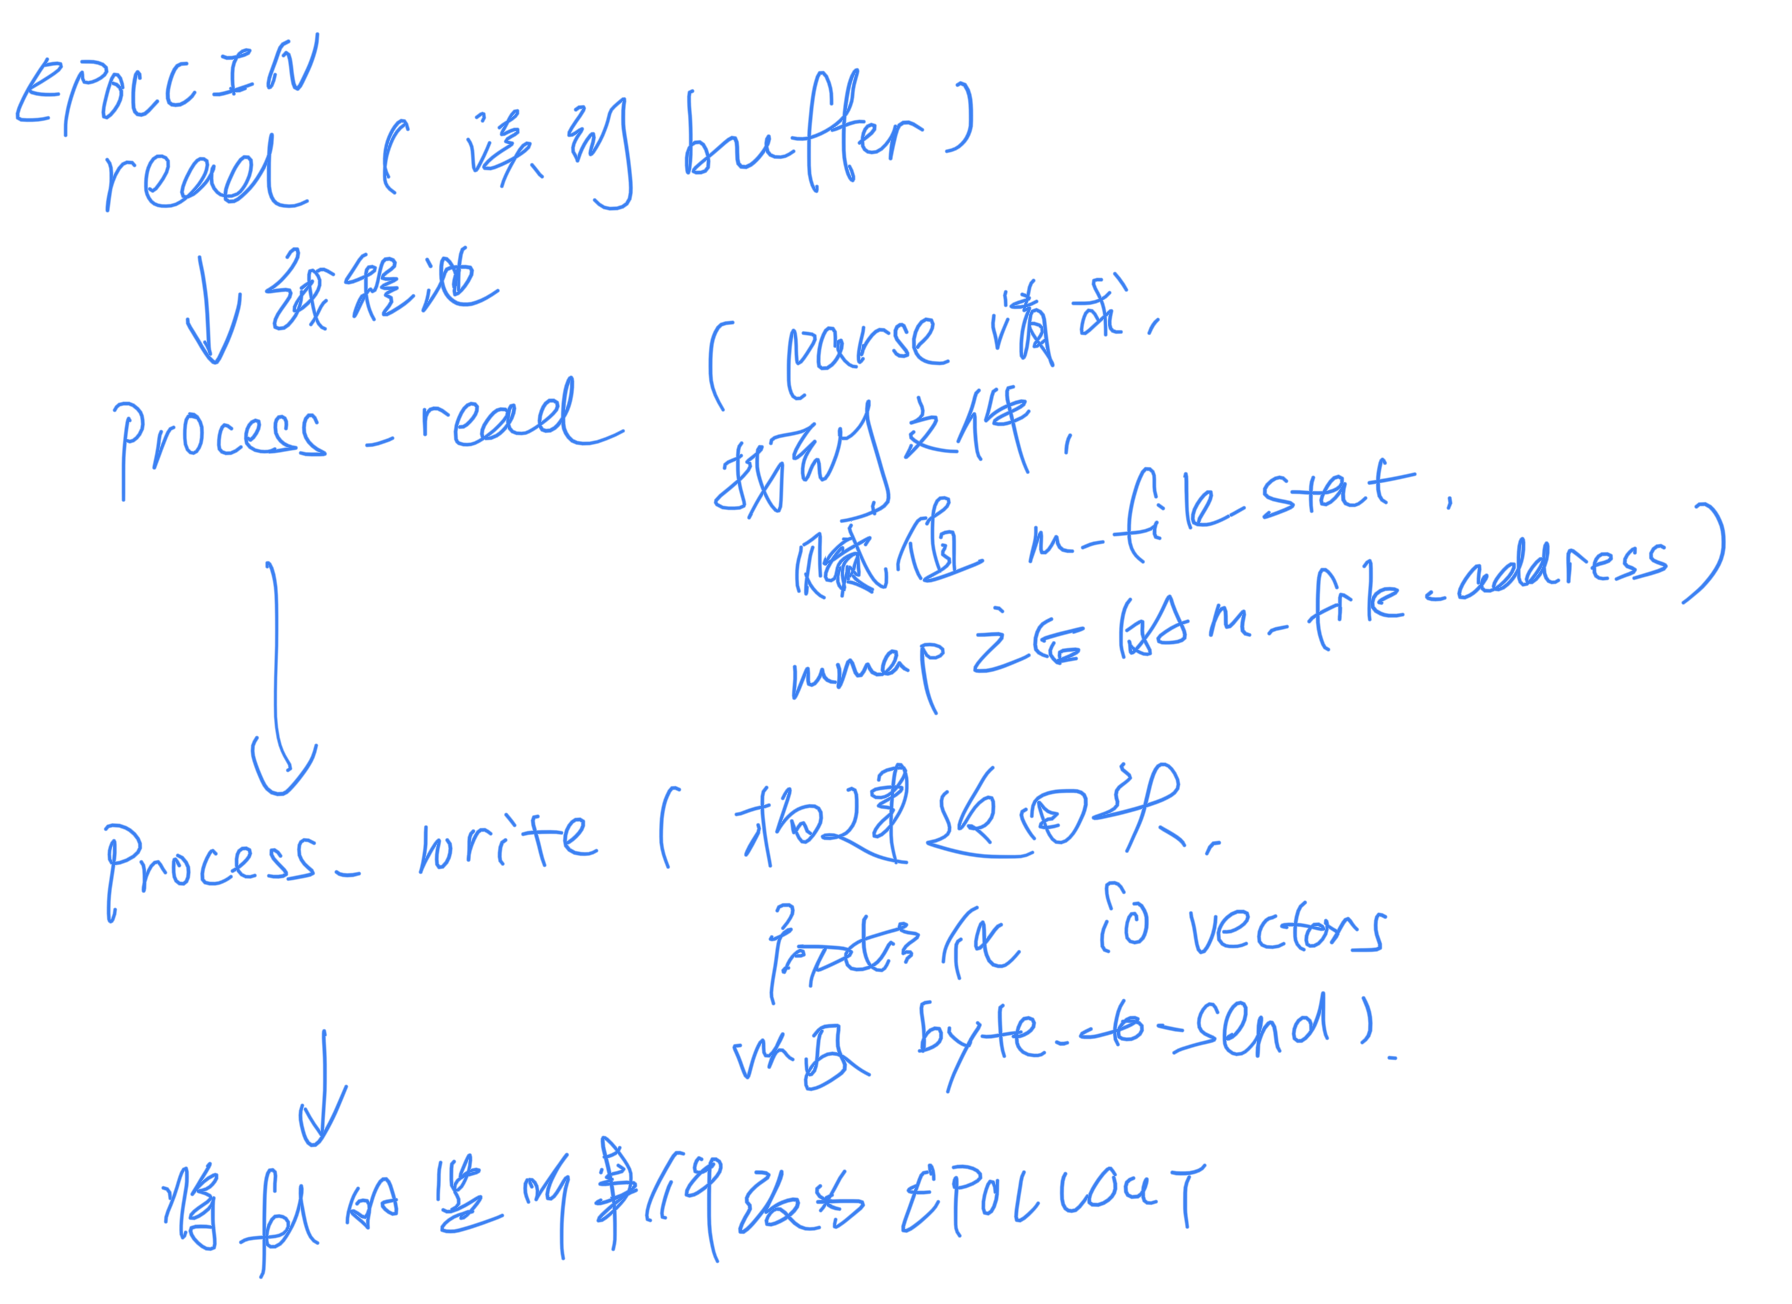 EPOLLIN
read ( 读到 buffer )
↓ 线程池
process_read ( parse 请求,
找到文件,
赋值 m_file_stat,
mmap之后的 m_file_address )
↓
process_write ( 构建返回头,
初始化 io vectors
以及 byte_to_send ).
↓
将 fd 的监听事件改为 EPOLLOUT